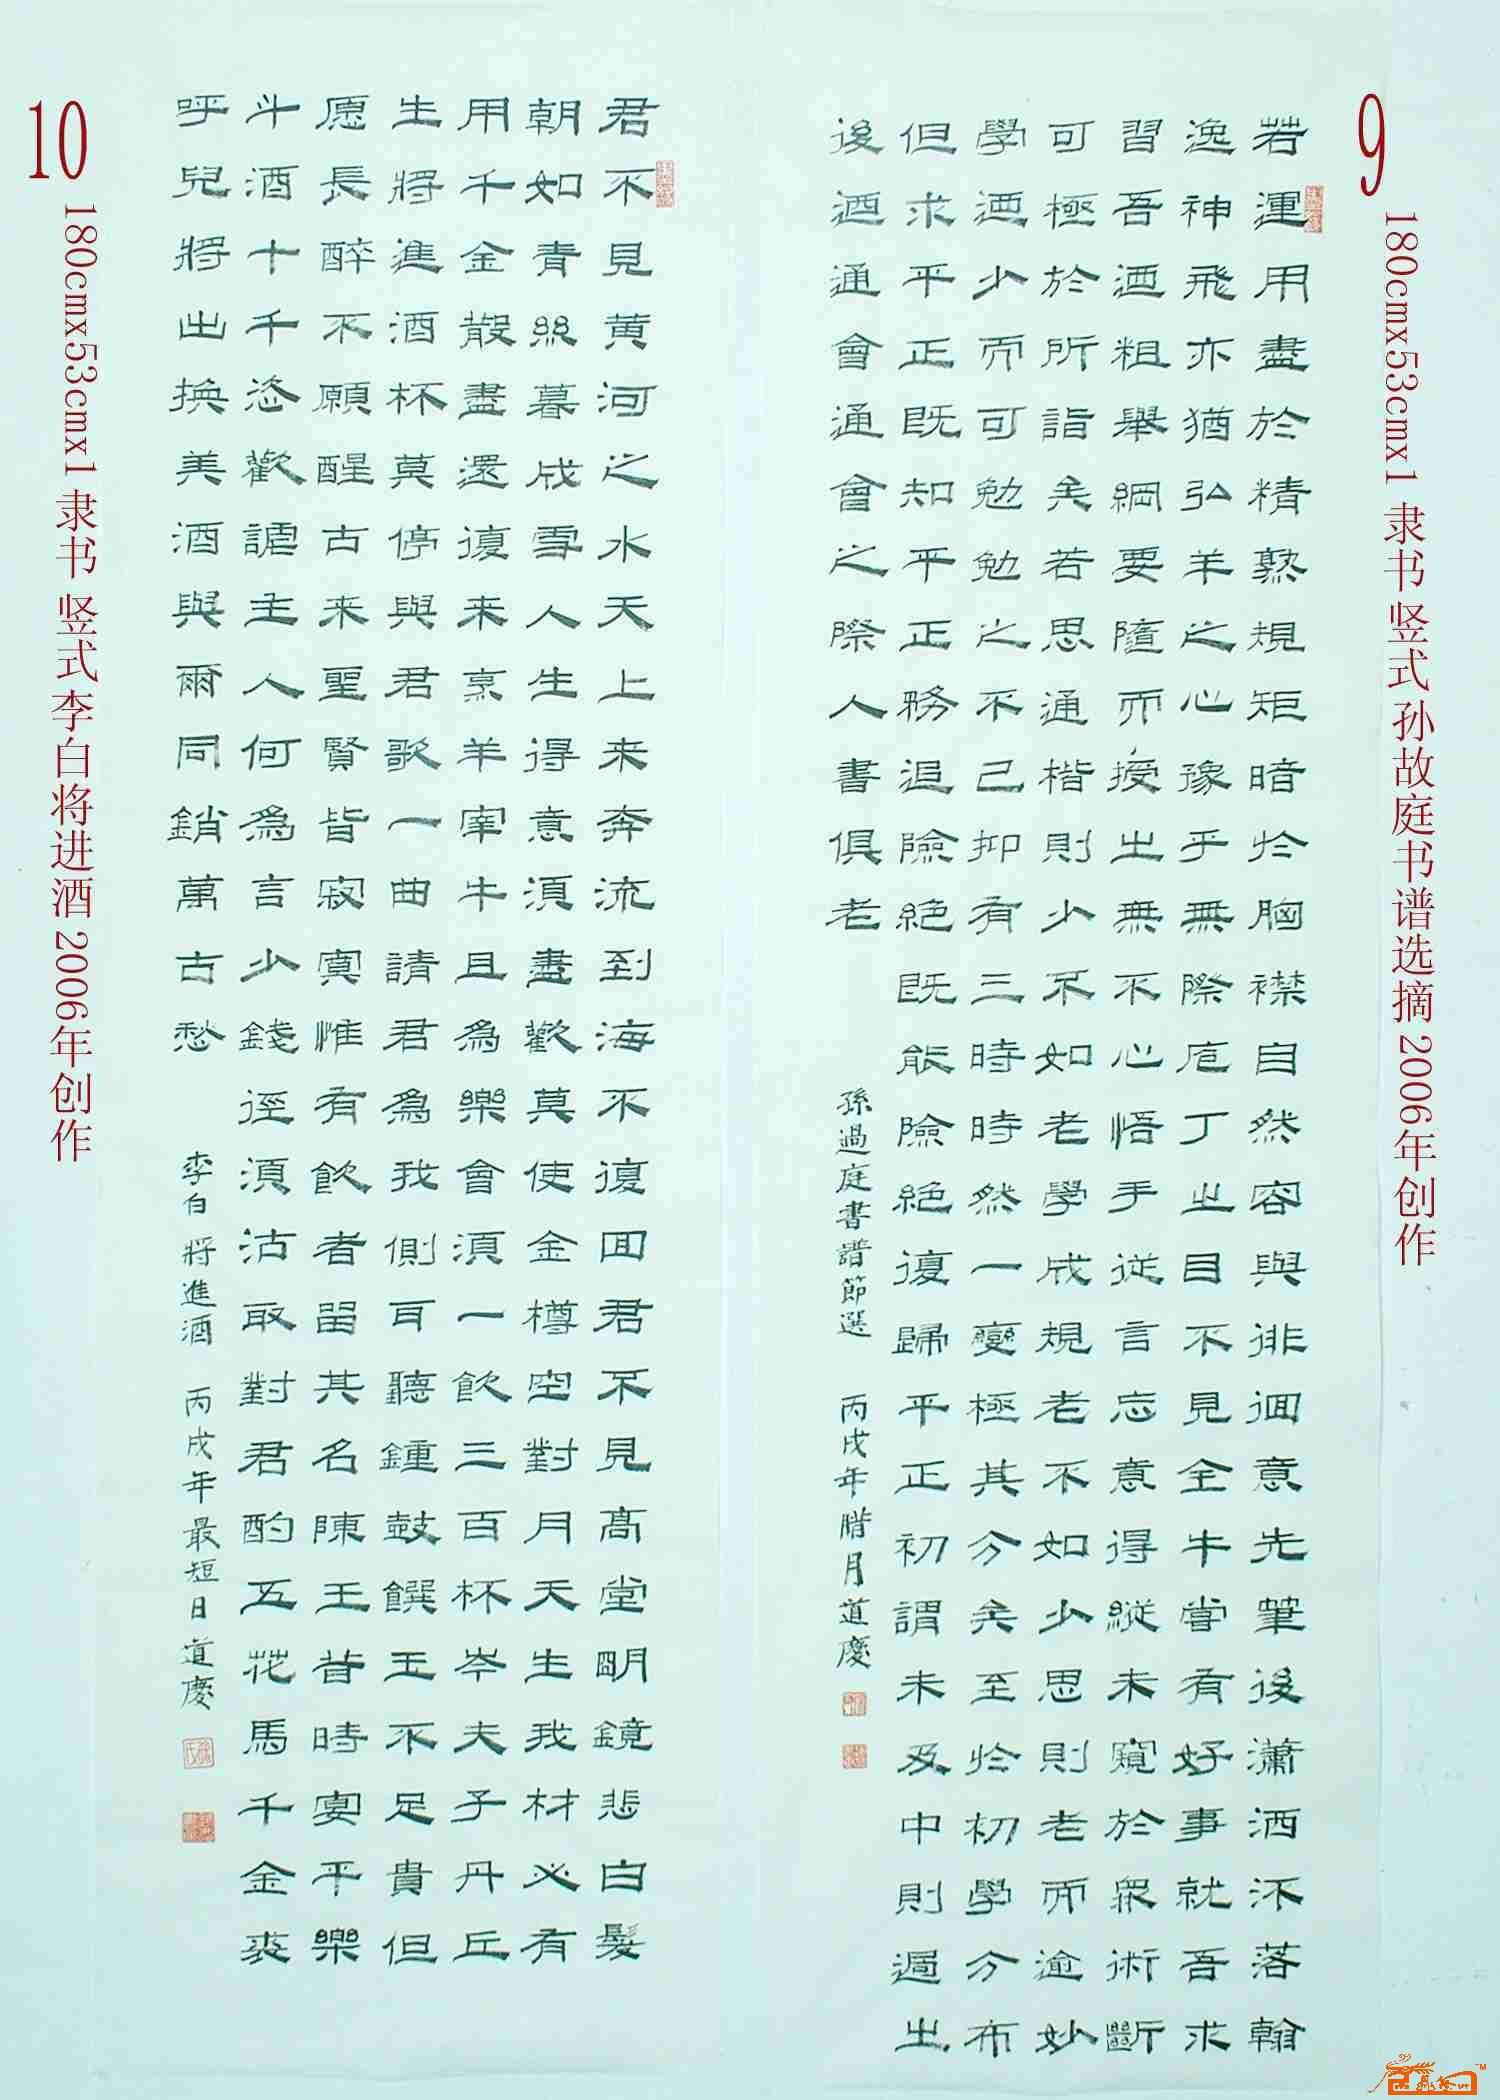 9
180cmx53cmx1 隶书 竖式 孙故庭书谱选摘 2006年创作
若運用盡於精熟規矩暗於胸襟自然容與徘徊意先筆後瀟洒不落翰
逸神飛亦猶弘羊之心豫乎無際庖丁之目不見全牛嘗有好事就吾求
習吾迺粗舉綱要隨而授之無不心悟手從言忘意得縱未窺於眾術斷
可極於所詣矣若思通楷則少不如老學成規老不如少思則老而逾妙
學迺少而可勉勉之不已抑有三時時然一變極其分矣至於初學分布
但求平正既知平正務追險絕既能險絕復歸平正初謂未及中則過之
後迺通會通會之際人書俱老
孫過庭書譜節選 丙戌年腊月道慶
君不見黄河之水天上来奔流到海不復回君不見髙堂明鏡悲白髮
朝如青絲暮成雪人生得意須盡歡莫使金樽空對月天生我材必有
用千金散盡還復来烹羊宰牛且為樂會須一飲三百杯岑夫子丹丘
生將進酒杯莫停與君歌一曲請君為我側耳聽鍾鼓饌玉不足貴但
愿長醉不願醒古来聖賢皆寂寞惟有飲者留其名陳王昔時宴平樂
斗酒十千恣歡謔主人何為言少錢徑須沽取對君酌五花馬千金裘
呼兒將出換美酒與爾同銷萬古愁
李白將進酒 丙戌年最短日道慶
10
180cmx53cmx1 隶书 竖式 李白将进酒 2006年创作